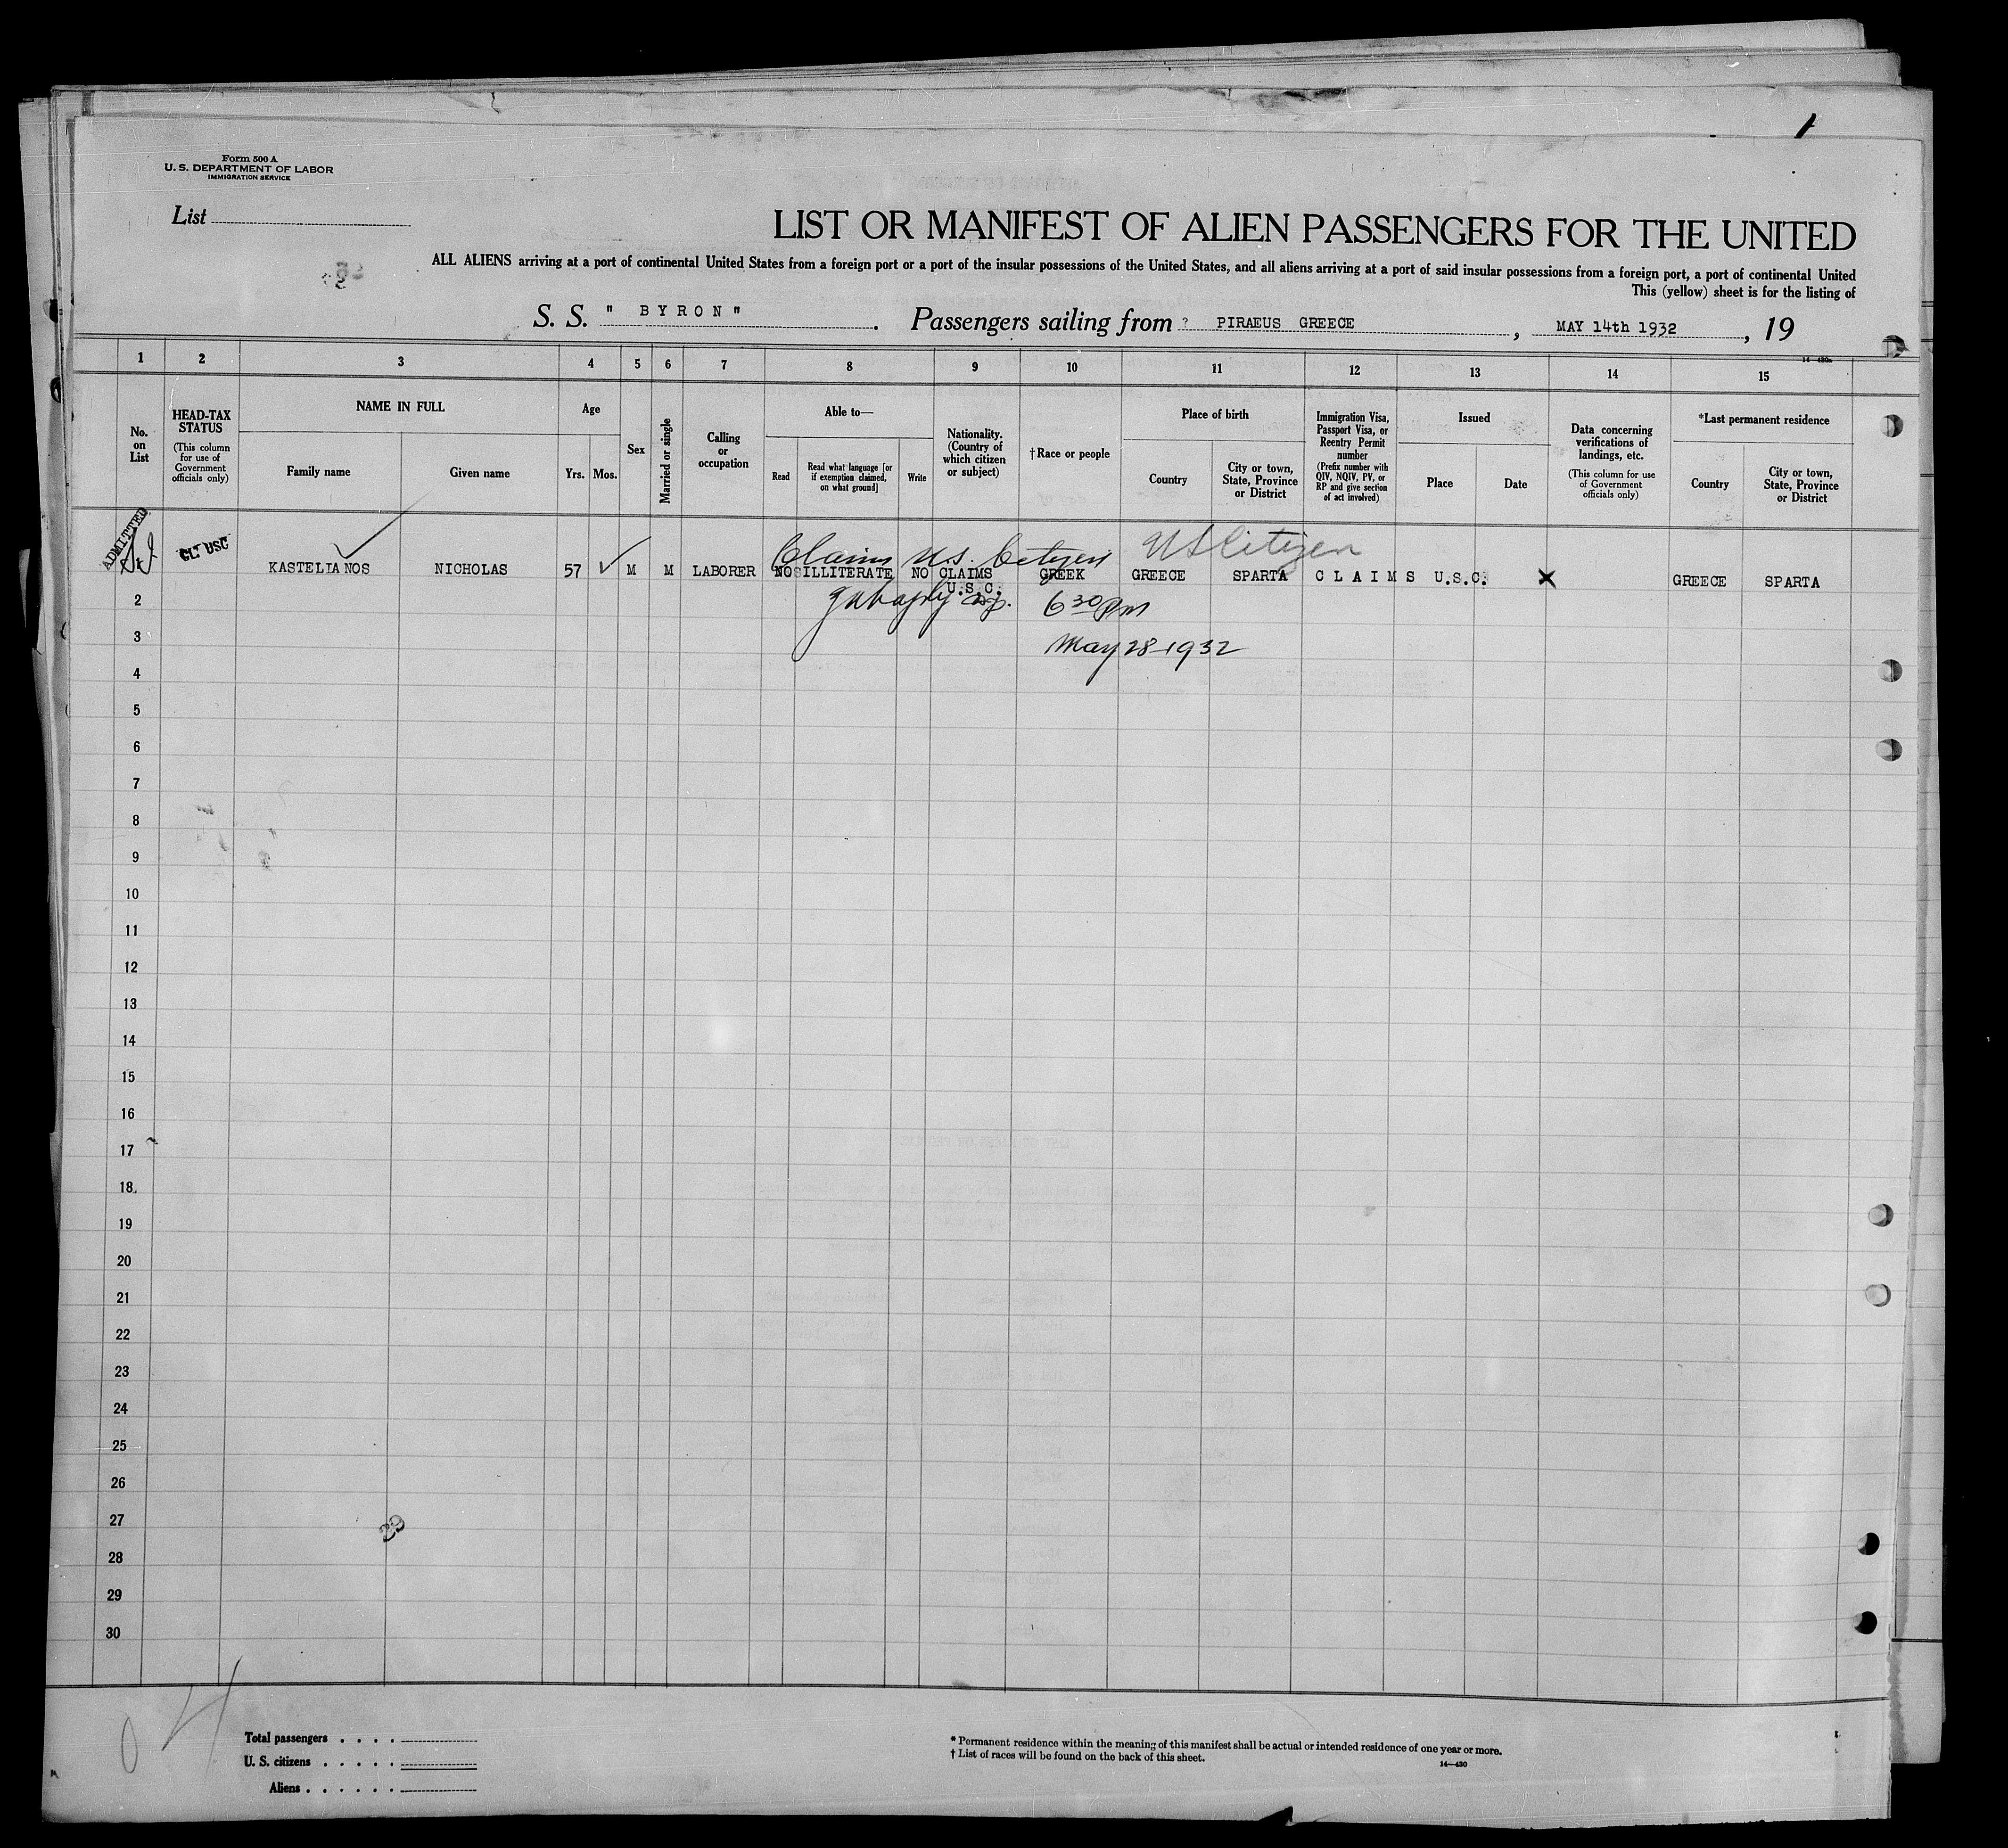 Form 500 A
U. S. DEPARTMENT OF LABOR
IMMIGRATION SERVICE
List
LIST OR MANIFEST OF ALIEN PASSENGERS FOR THE UNITED
ALL ALIENS arriving at a port of continental United States from a foreign port or a port of the insular possessions of the United States, and all aliens arriving at a port of said insular possessions from a foreign port, a port of continental United
This (yellow) sheet is for the listing of
S. S. " BYRON" . Passengers sailing from ? PIRAEUS GREECE , MAY 14th 1932 , 19
1 2 3 4 5 6 7 8 9 10 11 12 13 14 15
No. on List
HEAD-TAX STATUS
(This column for use of Government officials only)
NAME IN FULL
Family name
Given name
Age
Yrs.
Mos.
Sex
Married or single
Calling or occupation
Able to—
Read
Read what language [or if exemption claimed, on what ground]
Write
Nationality. (Country of which citizen or subject)
†Race or people
Place of birth
Country
City or town, State, Province or District
Immigration Visa, Passport Visa, or Reentry Permit number
(Prefix number with QIV, NQIV, PV, or RP and give section of act involved)
Issued
Place
Date
Data concerning verifications of landings, etc.
(This column for use of Government officials only)
*Last permanent residence
Country
City or town, State, Province or District
ADMITTED
CL: USC
Claims U.S. Citizen US Citizen
KASTELIANOS NICHOLAS 57 M M LABORER NO ILLITERATE NO CLAIMS GREEK GREECE SPARTA CLAIMS U.S.C. X GREECE SPARTA
U.S.C.
6 30 Pm
May 28-1932
2
3
4
5
6
7
8
9
10
11
12
13
14
15
16
17
18
19
20
21
22
23
24
25
26
27
28
29
30
Total passengers . . . .
U. S. citizens . . . . .
Aliens . . . . . .
* Permanent residence within the meaning of this manifest shall be actual or intended residence of one year or more.
† List of races will be found on the back of this sheet.
14—430